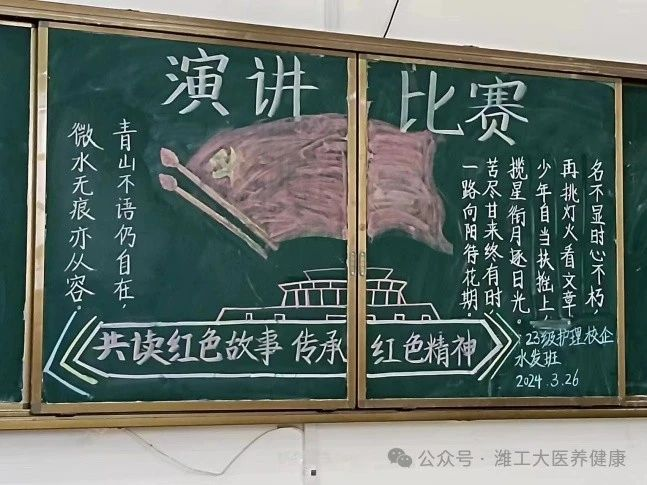 演讲比赛
名不显时心不朽,
再挑灯火看文章。
少年自当扶摇上,
揽星衔月逐日光。
苦尽甘来终有时,
一路向阳待花期。
青山不语仍自在,
微水无痕亦从容。
共读红色故事 传承红色精神
23级护理校企
水发班
2024.3.26
公众号·潍工大医养健康